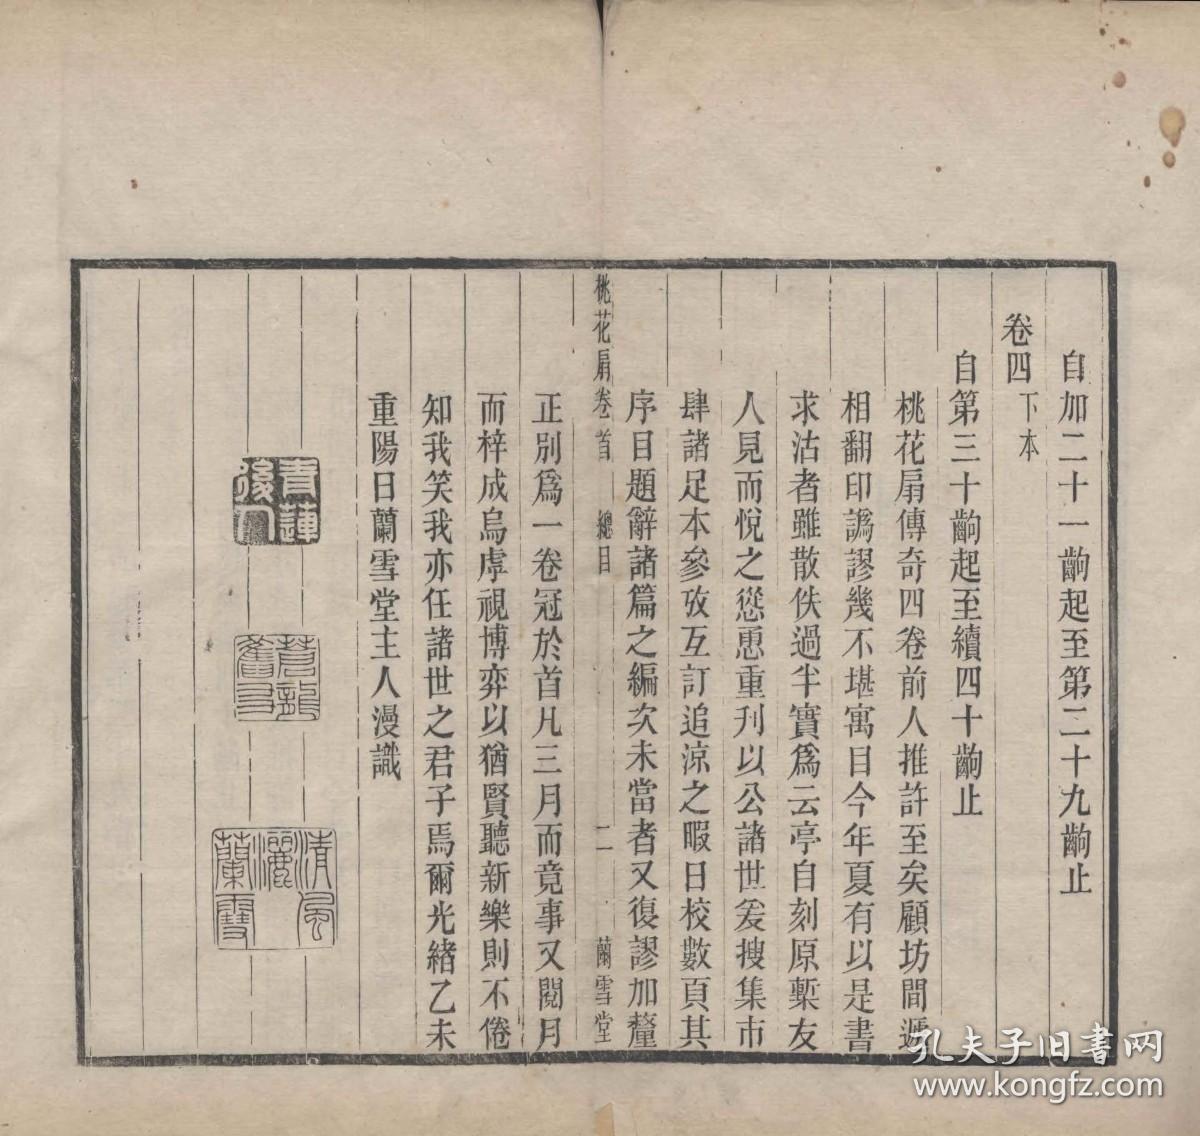 自加二十一齣起至第二十九齣止
卷四 下本
自第三十齣起至續四十齣止
桃花扇傳奇四卷前人推許至矣顧坊間遞
相翻印譌謬幾不堪寓目今年夏有以是書
求沽者雖散佚過半實爲云亭自刻原槧友
人見而悅之慫恿重刊以公諸世爰搜集市
肆諸足本參攷互訂追涼之暇日校數頁其
序目題辭諸篇之編次未當者又復謬加釐
桃花扇卷首 總目 二 蘭雪堂
正別爲一卷冠於首凡三月而竟事又閱月
而梓成烏虖視博弈以猶賢聽新樂則不倦
知我笑我亦任諸世之君子焉爾光緒乙未
重陽日蘭雪堂主人漫識
青蓮後人
清風灑蘭雪
孔夫子旧书网
www.kongfz.com